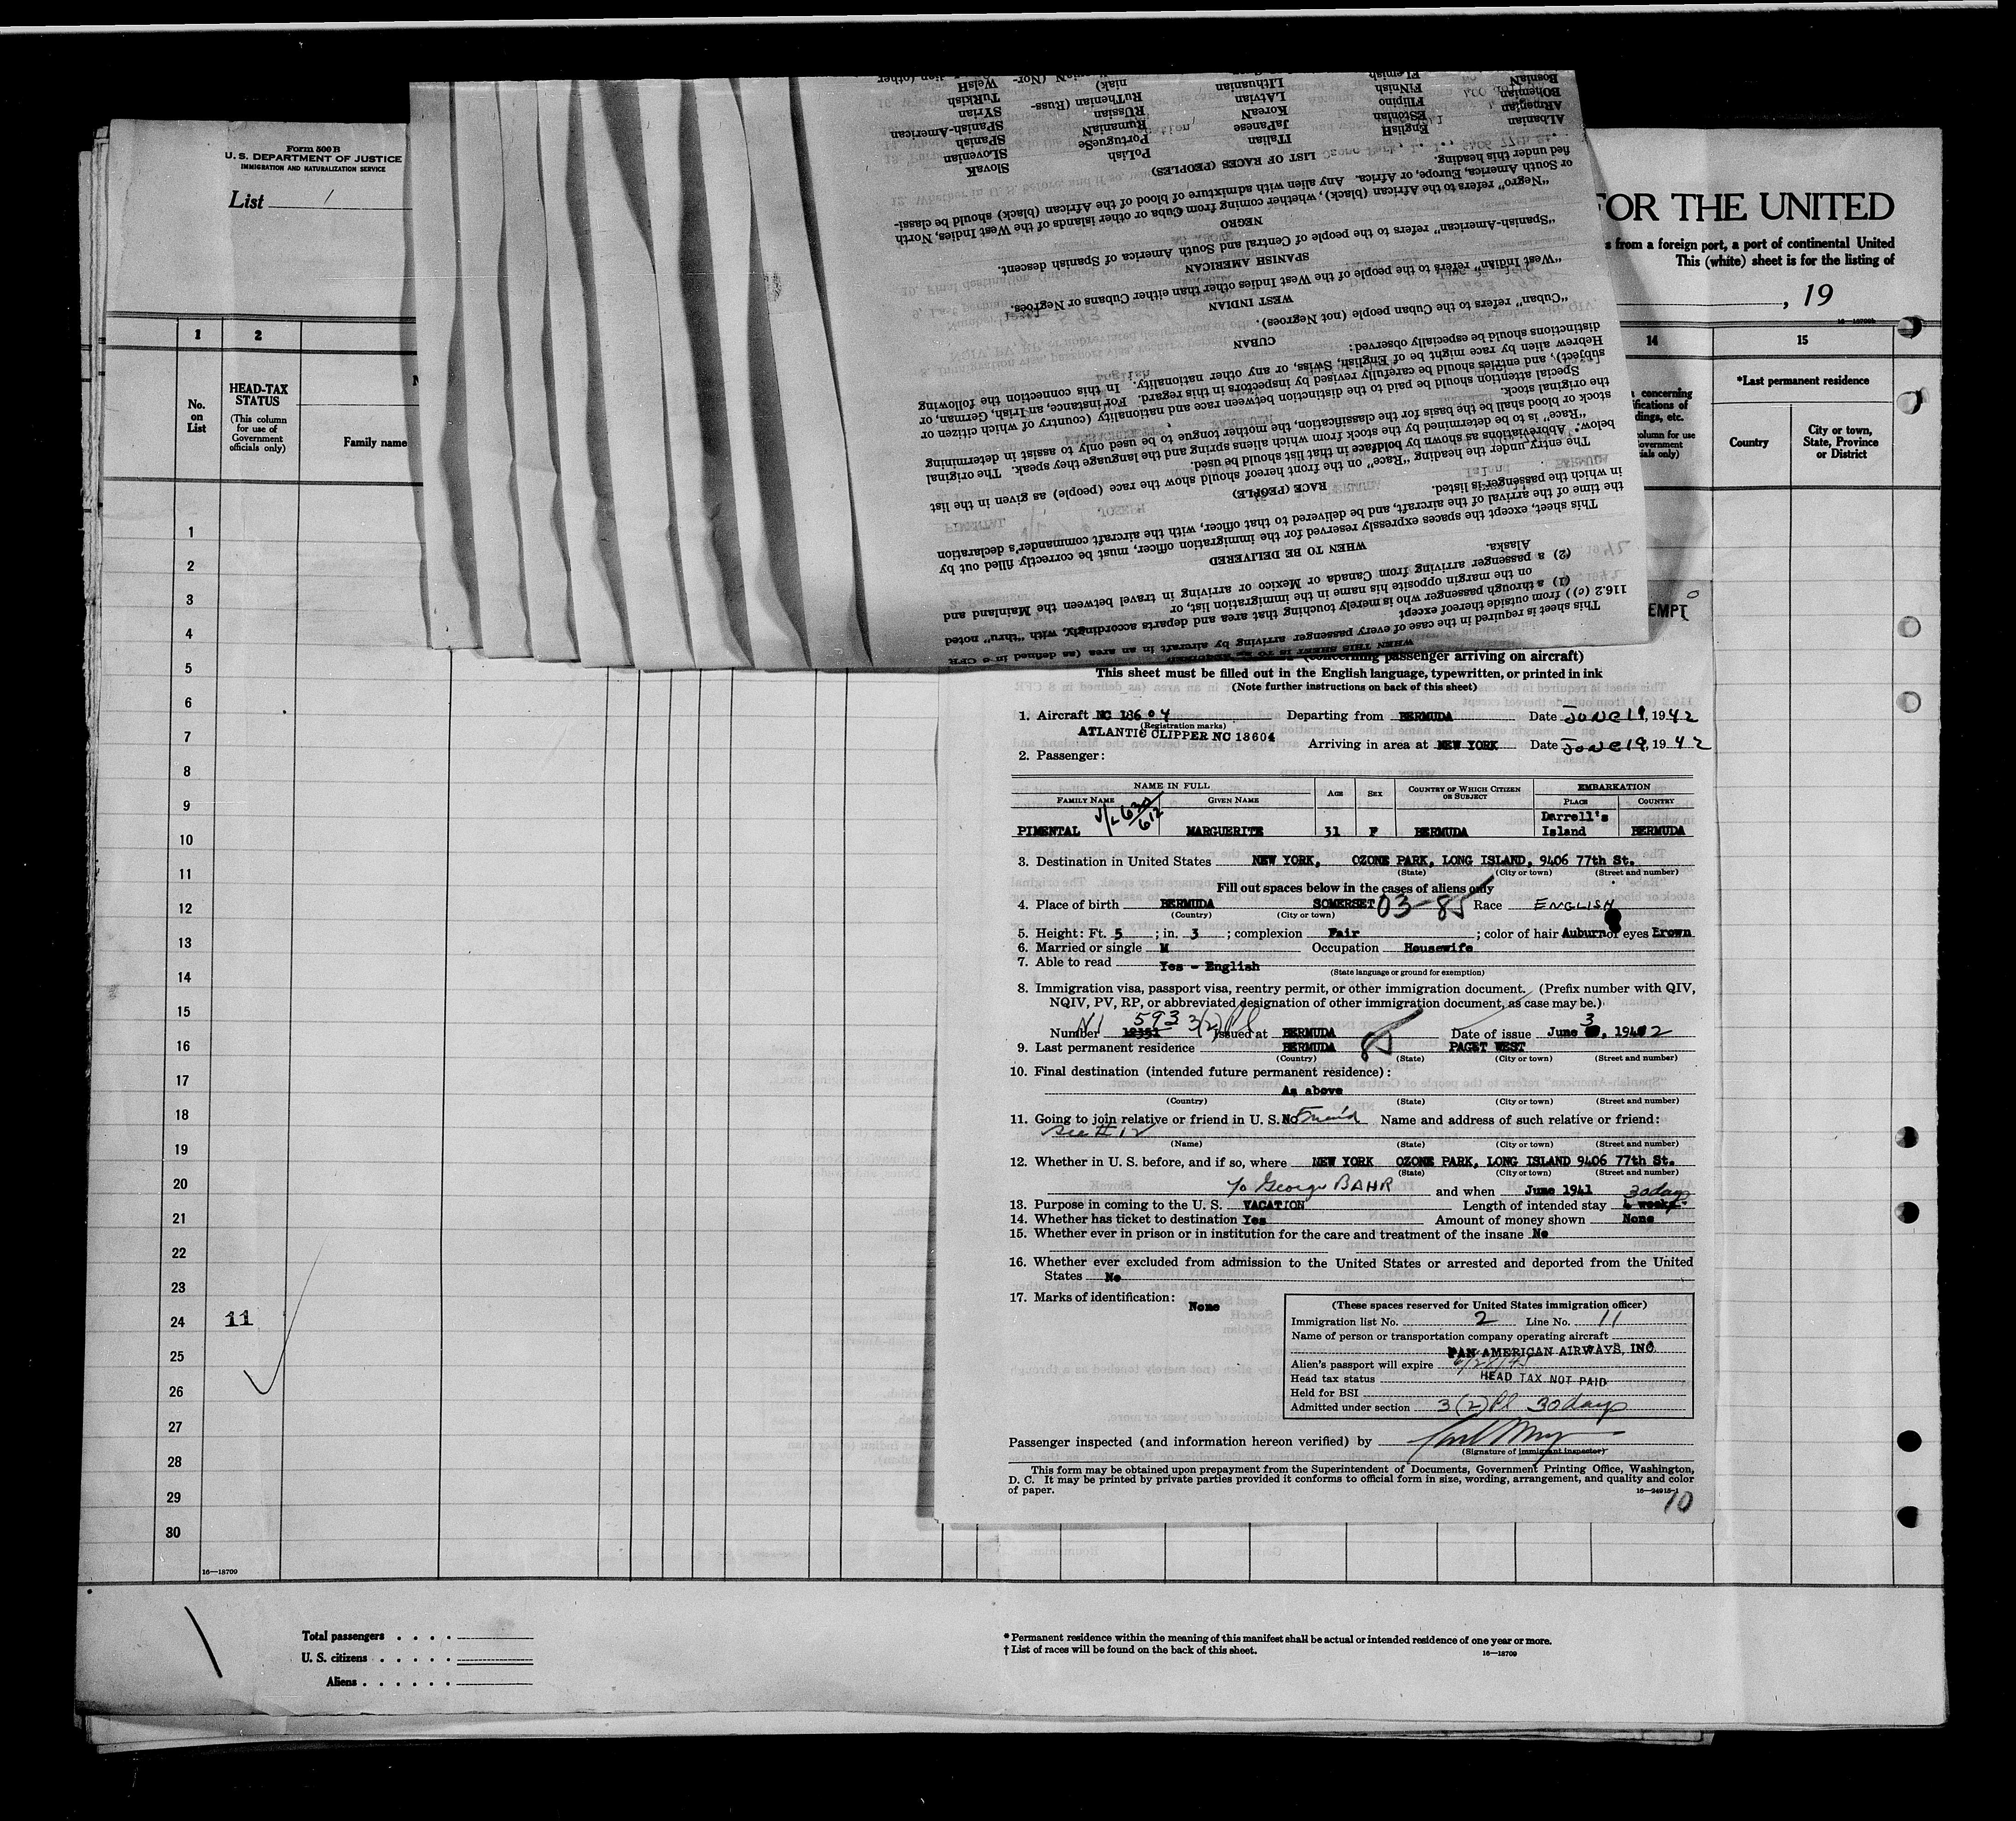 Form 500 B
U. S. DEPARTMENT OF JUSTICE
IMMIGRATION AND NATURALIZATION SERVICE
List 1
FOR THE UNITED
s from a foreign port, a port of continental United
This (white) sheet is for the listing of
, 19
1 2 14 15
HEAD-TAX STATUS
(This column for use of Government officials only)
No. on List
Family name
*Last permanent residence
Country
City or town, State, Province or District
This sheet is required in the case of every passenger arriving by aircraft in an area (as defined in 8 CFR
116.2 (c)) from outside thereof except
(1) a through passenger who is merely touching that area and departs accordingly, with "thru" noted
on the margin opposite his name in the immigration list, or
(2) a passenger arriving from Canada or Mexico or arriving in travel between the Mainland and
Alaska.
WHEN TO BE DELIVERED
This sheet, except the spaces expressly reserved for the immigration officer, must be correctly filled out by
the time of the arrival of the aircraft, and be delivered to that officer, with the aircraft commander's declaration
in which the passenger is listed.
RACE (PEOPLE)
The entry under the heading "Race" on the front hereof should show the race (people) as given in the list
below. Abbreviations as shown by boldface in that list should be used.
"Race" is to be determined by the stock from which aliens spring and the language they speak. The original
stock or blood shall be the basis for the classification, the mother tongue to be used only to assist in determining
the original stock.
Special attention should be paid to the distinction between race and nationality (country of which citizen or
subject), and entries should be carefully revised by inspectors in this regard. For instance, an Irish, German, or
Hebrew alien by race might be of English, Swiss, or any other nationality. In this connection the following
distinctions should be especially observed:
CUBAN
"Cuban" refers to the Cuban people (not Negroes).
WEST INDIAN
"West Indian" refers to the people of the West Indies other than either Cubans or Negroes.
SPANISH AMERICAN
"Spanish-American" refers to the people of Central and South America of Spanish descent.
NEGRO
"Negro" refers to the African (black), whether coming from Cuba or other islands of the West Indies, North
or South America, Europe, or Africa. Any alien with admixture of blood of the African (black) should be classi-
fied under this heading.
LIST OF RACES (PEOPLES)
AlBanian EnglisH ITaliaN PoLish SlovaK
ARmenian EStonian JaPanese PortugueSe SLOvenian
BOHemian FIlipino KoreaN RumaniaN SPanisH
BosniaN FINnish LAtvian RUSsian SPanish-American
FLemish LIthuanian RuThenian (Russ- SYrian
niak) TuRkish
WelsH
(concerning passenger arriving on aircraft)
This sheet must be filled out in the English language, typewritten, or printed in ink
(Note further instructions on back of this sheet)
1. Aircraft NC 18604 Departing from BERMUDA Date JUNE 19, 1942
(Registration marks)
ATLANTIC CLIPPER NC 18604
Arriving in area at NEW YORK Date JUNE 19, 1942
2. Passenger:
NAME IN FULL AGE SEX COUNTRY OF WHICH CITIZEN OR SUBJECT EMBARKATION
FAMILY NAME GIVEN NAME PLACE COUNTRY
PIMENTAL MARGUERITE 31 F BERMUDA Darrell's Island BERMUDA
3. Destination in United States NEW YORK, OZONE PARK, LONG ISLAND, 9406 77th St.
(State) (City or town) (Street and number)
Fill out spaces below in the cases of aliens only
4. Place of birth BERMUDA SOMERSET 03-85 Race ENGLISH
(Country) (City or town)
5. Height: Ft. 5 ; in. 3 ; complexion Fair ; color of hair Auburn of eyes Brown
6. Married or single M Occupation Housewife
7. Able to read Yes - English
(State language or ground for exemption)
8. Immigration visa, passport visa, reentry permit, or other immigration document. (Prefix number with QIV,
NQIV, PV, RP, or abbreviated designation of other immigration document, as case may be.)
Number 593 3(2) Issued at BERMUDA Date of issue June 3, 1942
9. Last permanent residence BERMUDA 85 PAGET WEST
(Country) (State) (City or town) (Street and number)
10. Final destination (intended future permanent residence):
As above
(Country) (State) (City or town) (Street and number)
11. Going to join relative or friend in U. S. No Friend Name and address of such relative or friend:
See # 12
(Name) (State) (City or town) (Street and number)
12. Whether in U. S. before, and if so, where NEW YORK OZONE PARK, LONG ISLAND 9406 77th St.
(State) (City or town) (Street and number)
℅ George BAHR and when June 1941 30 days
13. Purpose in coming to the U. S. VACATION Length of intended stay 4 weeks
14. Whether has ticket to destination Yes Amount of money shown None
15. Whether ever in prison or in institution for the care and treatment of the insane No
16. Whether ever excluded from admission to the United States or arrested and deported from the United
States No
17. Marks of identification: None
(These spaces reserved for United States immigration officer)
Immigration list No. 2 Line No. 11
Name of person or transportation company operating aircraft
PAN AMERICAN AIRWAYS, INC
Alien's passport will expire
Head tax status HEAD TAX NOT PAID
Held for BSI
Admitted under section 3(2) Pl 30 days
Passenger inspected (and information hereon verified) by
(Signature of immigrant inspector)
This form may be obtained upon prepayment from the Superintendent of Documents, Government Printing Office, Washington,
D. C. It may be printed by private parties provided it conforms to official form in size, wording, arrangement, and quality and color
of paper.
16—24915-1
10
1
2
3
4
5
6
7
8
9
10
11
12
13
14
15
16
17
18
19
20
21
22
23
24 11
25
26
27
28
29
30
16—18709
Total passengers
U. S. citizens
Aliens
* Permanent residence within the meaning of this manifest shall be actual or intended residence of one year or more.
† List of races will be found on the back of this sheet.
16—18709